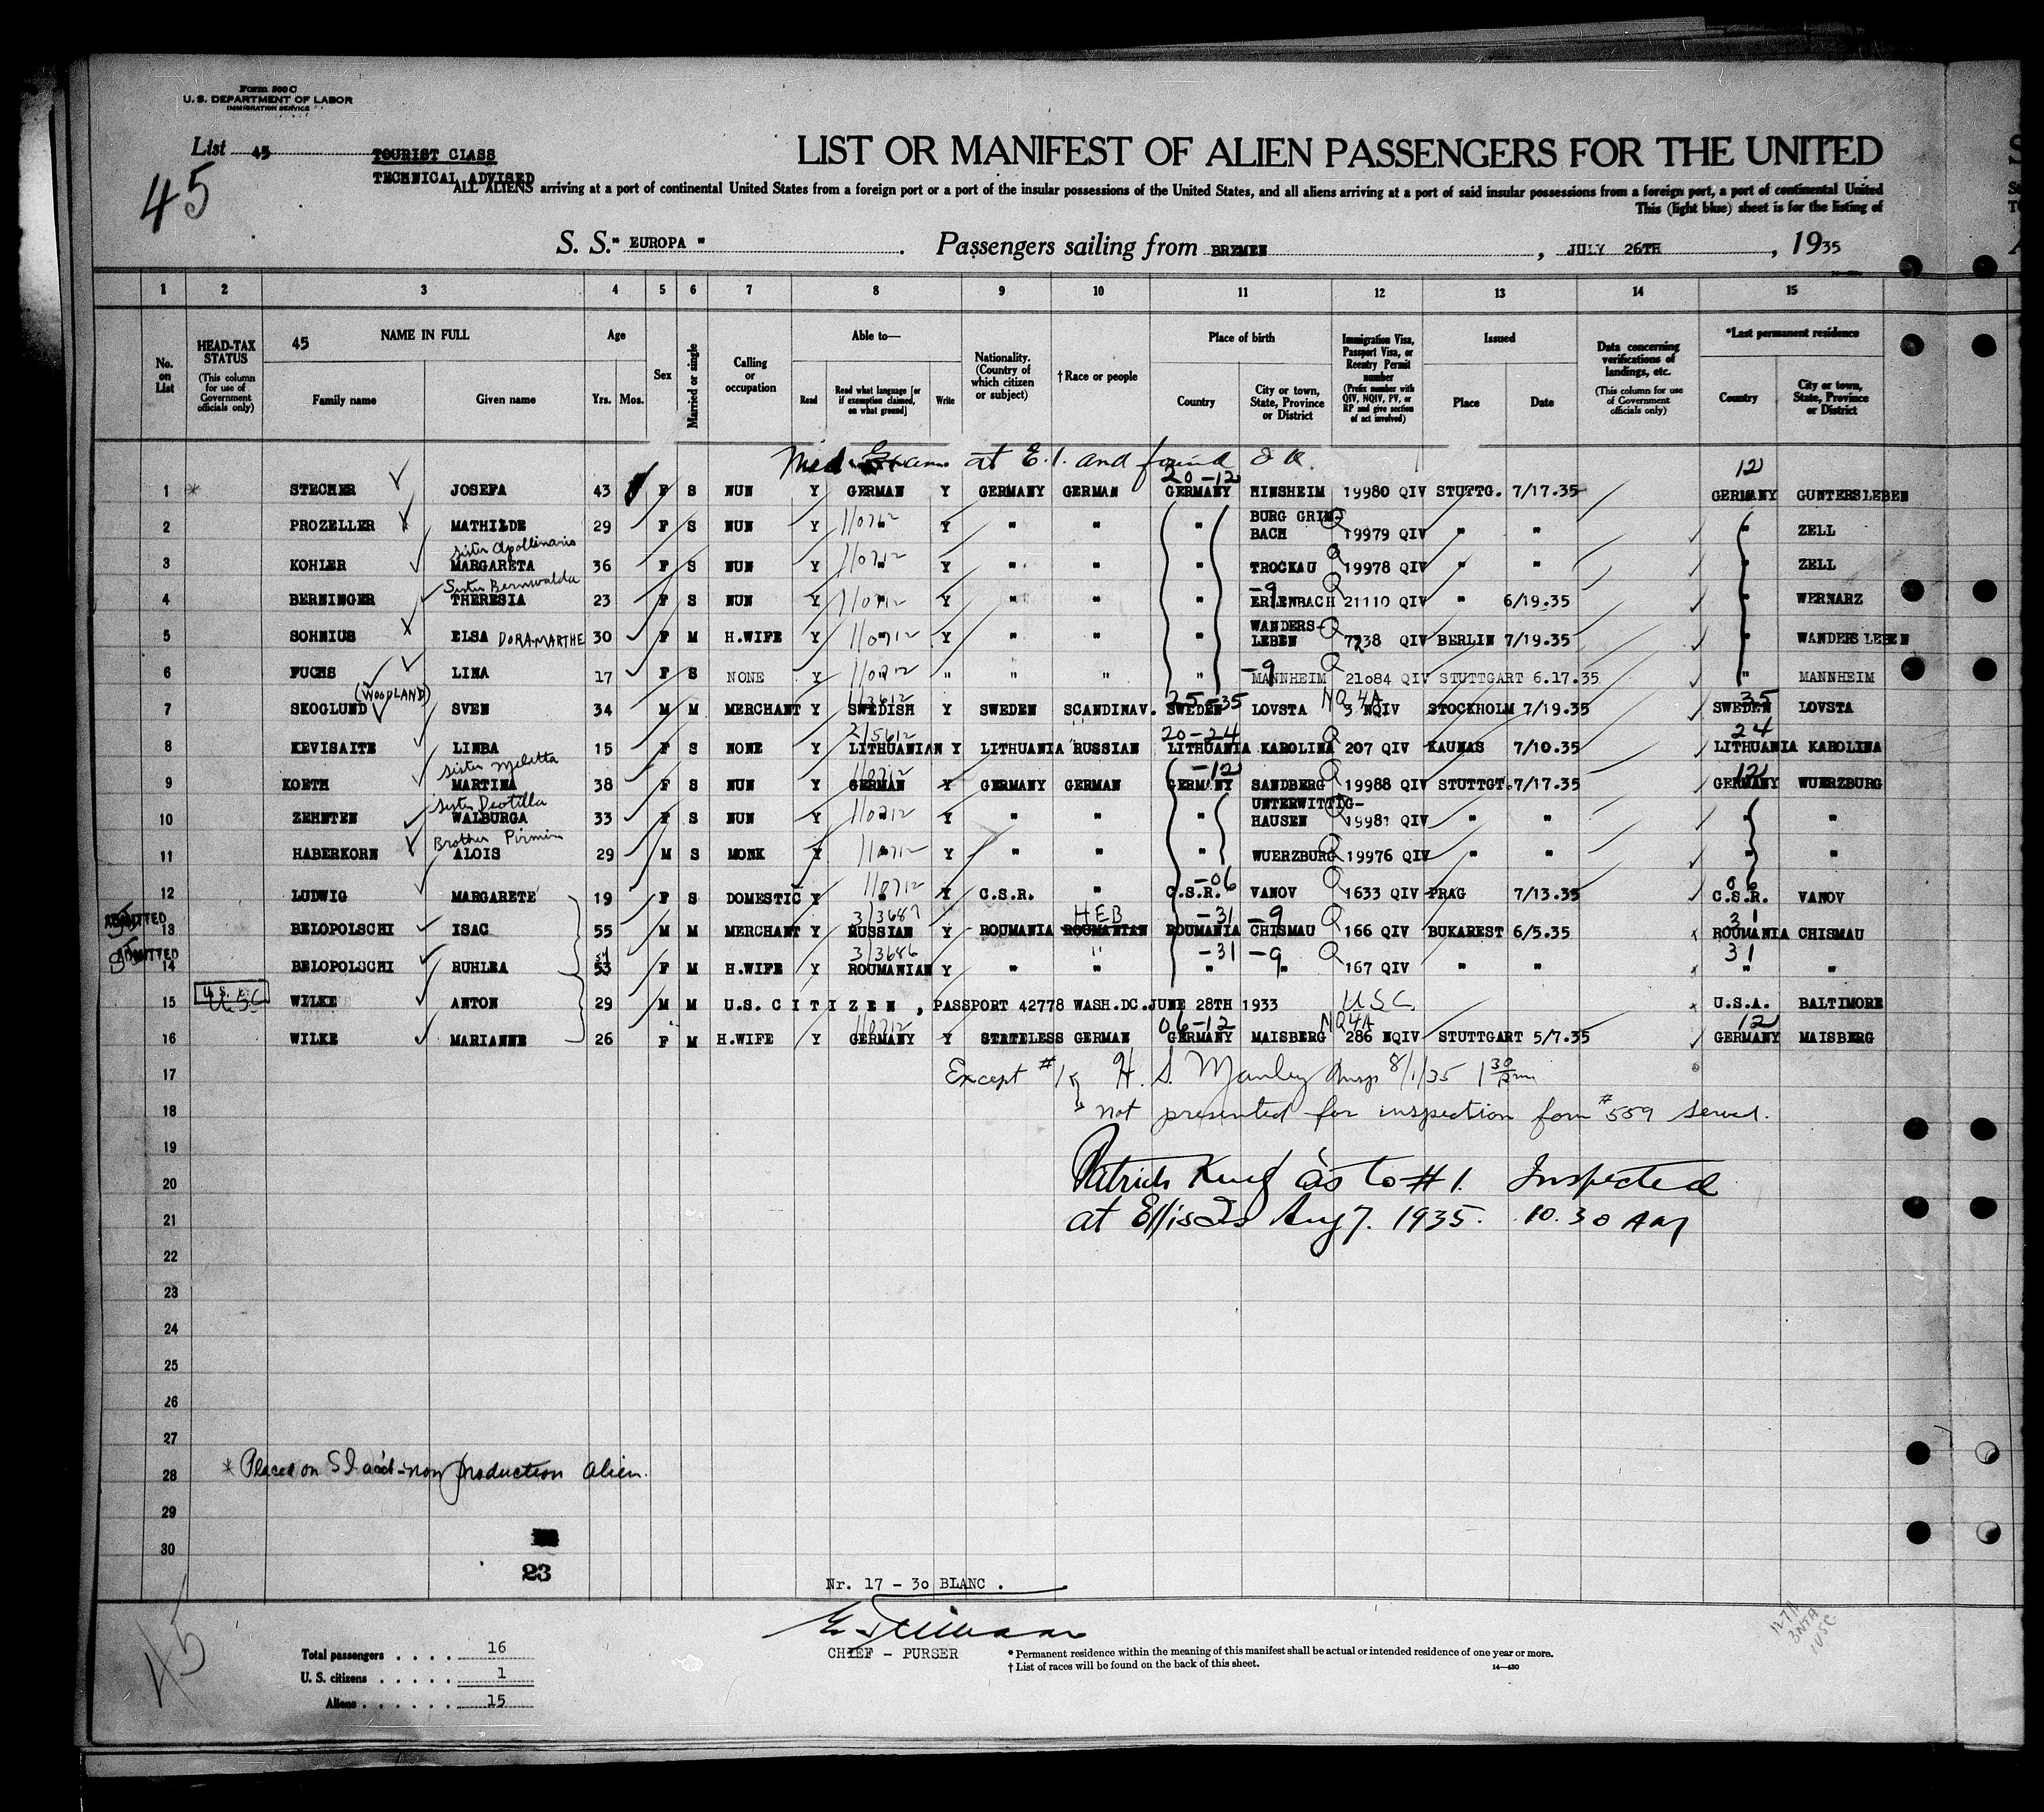 Form 500 C
U. S. DEPARTMENT OF LABOR
IMMIGRATION SERVICE
List 45
TOURIST CLASS
TECHNICAL ADVISED
45
LIST OR MANIFEST OF ALIEN PASSENGERS FOR THE UNITED
ALL ALIENS arriving at a port of continental United States from a foreign port or a port of the insular possessions of the United States, and all aliens arriving at a port of said insular possessions from a foreign port, a port of continental United
This (light blue) sheet is for the listing of
S. S. " EUROPA " Passengers sailing from BREMEN , JULY 26TH , 1935
1 2 3 4 5 6 7 8 9 10 11 12 13 14 15
No. on List
HEAD-TAX STATUS (This column for use of Government officials only)
45 NAME IN FULL
Family name Given name
Age Yrs. Mos.
Sex
Married or single
Calling or occupation
Able to—
Read Read what language [or if exemption claimed, on what ground] Write
Nationality. (Country of which citizen or subject)
† Race or people
Place of birth
Country City or town, State, Province or District
Immigration Visa, Passport Visa, or Reentry Permit number (Prefix number with QIV, NQIV, PV, or RP and give section of act involved)
Issued
Place Date
Data concerning verifications of landings, etc. (This column for use of Government officials only)
*Last permanent residence
Country City or town, State, Province or District
Med Exam at E.I. and found O K.
20-12 12
1 * STECHER JOSEFA 43 F S NUN Y GERMAN Y GERMANY GERMAN GERMANY HINSHEIM 19980 QIV STUTTG. 7/17.35 GERMANY GUNTERSLEBEN
2 PROZELLER MATHILDE 29 F S NUN Y 110712 Y " " " BURG GRIM-BACH 19979 QIV " " " ZELL
Sister Apollinaris
3 KOHLER MARGARETA 36 F S NUN Y 110712 Y " " " TROCKAU 19978 QIV " " " ZELL
Sister Bernwalda
4 BERNINGER THERESIA 23 F S NUN Y 110712 Y " " " ERLENBACH 21110 QIV " 6/19.35 " WERNARZ
5 SOHNIUS ELSA DORA-MARTHE 30 F M H.WIFE Y 110712 Y " " " WANDERS-LEBEN 7238 QIV BERLIN 7/19.35 " WANDERSLEBEN
6 FUCHS LINA 17 F S NONE Y 110712 " " " " MANNHEIM 21084 QIV STUTTGART 6.17.35 " MANNHEIM
(WOODLAND) 25-35 NQ 4A 35
7 SKOGLUND SVEN 34 M M MERCHANT Y SWEDISH Y SWEDEN SCANDINAV. SWEDEN LOVSTA 3 NQIV STOCKHOLM 7/19.35 SWEDEN LOVSTA
20-24 24
8 KEVISAITE LINBA 15 F S NONE Y LITHUANIAN Y LITHUANIA RUSSIAN LITHUANIA KAROLINA 207 QIV KAUNAS 7/10.35 LITHUANIA KAROLINA
Sister Meletta 110712 -12 12
9 KOETH MARTINA 38 F S NUN Y GERMAN Y GERMANY GERMAN GERMANY SANDBERG 19988 QIV STUTTGT. 7/17.35 GERMANY WUERZBURG
Sister Deotilla
10 ZEHNTEN WALBURGA 33 F S NUN Y 110712 Y " " " UNTERWITTIG-HAUSEN 19981 QIV " " " "
Brother Pirmin
11 HABERKORN ALOIS 29 M S MONK Y 110712 Y " " " WUERZBURG 19976 QIV " " " "
110712 -06 06
12 LUDWIG MARGARETE 19 F S DOMESTIC Y " Y C.S.R. " C.S.R. VANOV 1633 QIV PRAG 7/13.35 C.S.R. VANOV
ADMITTED HEB -31 -9 31
13 BELOPOLSCHI ISAC 55 M M MERCHANT Y RUSSIAN Y ROUMANIA ROUMANIAN ROUMANIA CHISMAU 166 QIV BUKAREST 6/5.35 ROUMANIA CHISMAU
ADMITTED 54 313686 " -31 -9 31
14 BELOPOLSCHI RUHLEA 53 F M H.WIFE Y ROUMANIAN Y " " " " 167 QIV " " " "
15 USC WILKE ANTON 29 M M U.S. C I T I Z E N , PASSPORT 42778 WASH.DC.JUNE 28TH 1933 USC U.S.A. BALTIMORE
110712 06-12 NQ4A 12
16 WILKE MARIANNE 26 F M H.WIFE Y GERMANY Y STATELESS GERMAN GERMANY MAISBERG 286 NQIV STUTTGART 5/7.35 GERMANY MAISBERG
17 Except #1 H. S. Manley Insp 8/1/35 1 30 pm
18 " not presented for inspection form #559 served.
19
20 Patrick as to #1. Inspected
21 at Ellis Is Aug 7. 1935. 10.30 AM
22
23
24
25
26
27
28 * Placed on S I a/c - non production alien.
29
30
23
Nr. 17 - 30 BLANC .
CHIEF - PURSER
Total passengers . . . . 16
U. S. citizens . . . . . 1
Aliens . . . . . . 15
* Permanent residence within the meaning of this manifest shall be actual or intended residence of one year or more.
† List of races will be found on the back of this sheet.
14—430
45